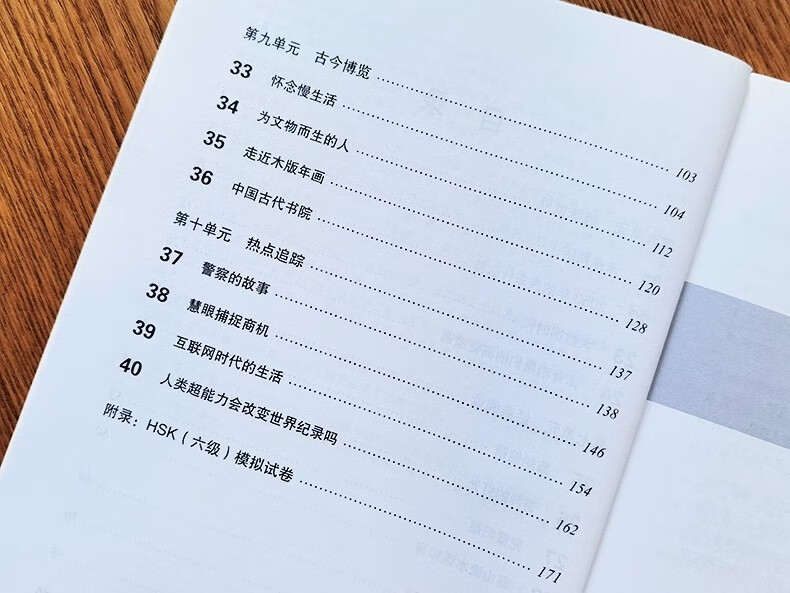 第九单元 古今博览 103
33 怀念慢生活 104
34 为文物而生的人 112
35 走近木版年画 120
36 中国古代书院 128
第十单元 热点追踪 137
37 警察的故事 138
38 慧眼捕捉商机 146
39 互联网时代的生活 154
40 人类超能力会改变世界纪录吗 162
附录：HSK（六级）模拟试卷 171